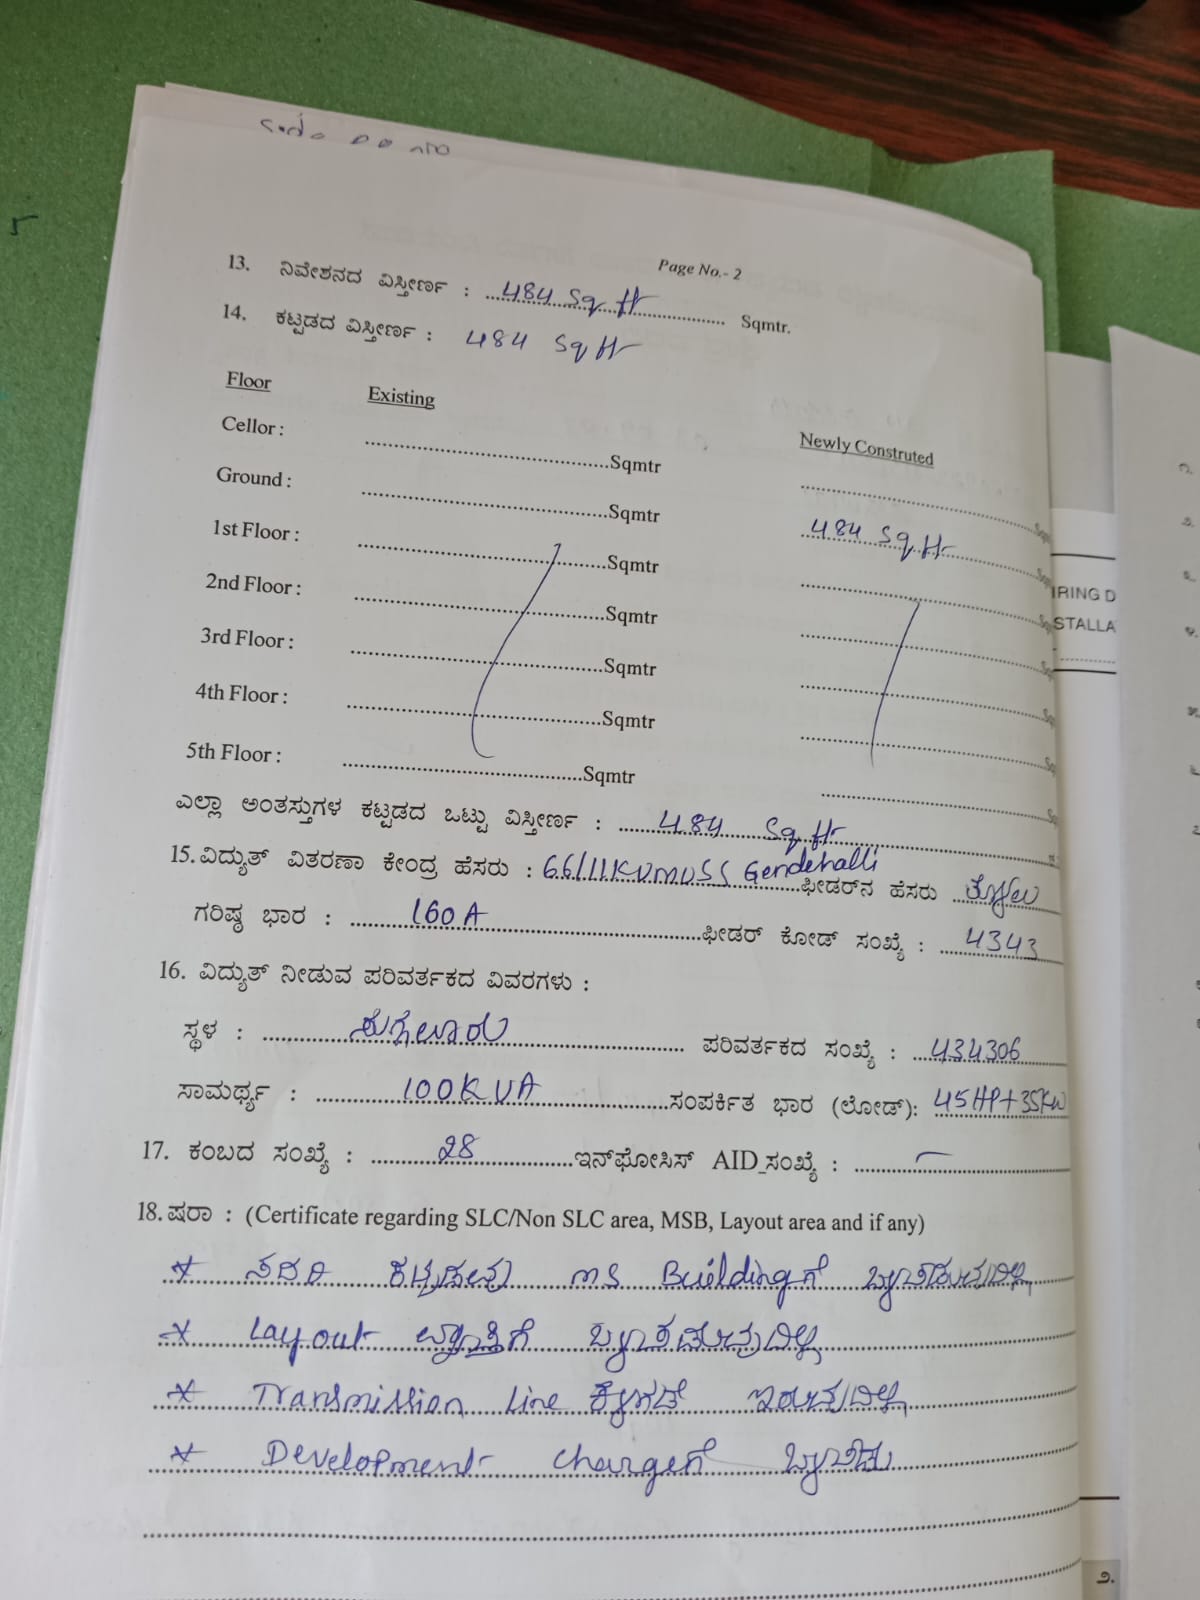 Page No.- 2
13. ನಿವೇಶನದ ವಿಸ್ತೀರ್ಣ : 484 Sq ft Sqmtr.
14. ಕಟ್ಟಡದ ವಿಸ್ತೀರ್ಣ : 484 Sq ft
Floor Existing Newly Construted
Cellor : Sqmtr
Ground : Sqmtr 484 Sq ft
1st Floor : Sqmtr
2nd Floor : Sqmtr
3rd Floor : Sqmtr
4th Floor : Sqmtr
5th Floor : Sqmtr
ಎಲ್ಲಾ ಅಂತಸ್ತುಗಳ ಕಟ್ಟಡದ ಒಟ್ಟು ವಿಸ್ತೀರ್ಣ : 484 Sq ft
15. ವಿದ್ಯುತ್ ವಿತರಣಾ ಕೇಂದ್ರ ಹೆಸರು : 66/11KV MUSS Gendehalli ಫೀಡರ್‌ನ ಹೆಸರು
ಗರಿಷ್ಠ ಭಾರ : 160A ಫೀಡರ್ ಕೋಡ್ ಸಂಖ್ಯೆ : 4343
16. ವಿದ್ಯುತ್ ನೀಡುವ ಪರಿವರ್ತಕದ ವಿವರಗಳು :
ಸ್ಥಳ : ಪರಿವರ್ತಕದ ಸಂಖ್ಯೆ : 434306
ಸಾಮರ್ಥ್ಯ : 100KVA ಸಂಪರ್ಕಿತ ಭಾರ (ಲೋಡ್): 45HP+35KW
17. ಕಂಬದ ಸಂಖ್ಯೆ : 28 ಇನ್‌ಫೋಸಿಸ್ AID_ಸಂಖ್ಯೆ :
18. ಷರಾ : (Certificate regarding SLC/Non SLC area, MSB, Layout area and if any)
* ಸದರಿ ಕಟ್ಟಡವು MS Buildingಗೆ ಒಳಪಡುವುದಿಲ್ಲ
* Layout ವ್ಯಾಪ್ತಿಗೆ ಒಳಪಡುವುದಿಲ್ಲ
* Transmission Line ಕೆಳಗಡೆ ಇರುವುದಿಲ್ಲ
* Development chargeಗೆ
IRING D
STALLA